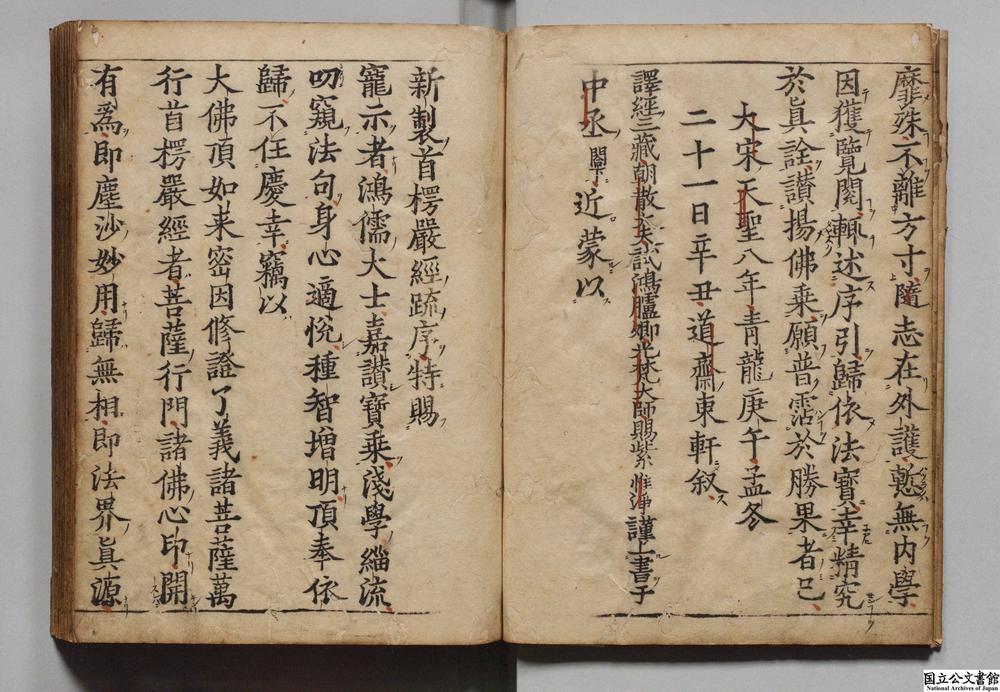 靡殊不離方寸隨志在外護慙無内學
因獲覽閱輒述序引歸依法寶幸精究
於眞詮讃揚佛乘願普霑於勝果者巳
大宋天聖八年青龍庚午孟冬
二十一日辛丑道齋東軒叙
譯經三藏朝散大夫試鴻臚卿光梵大師賜紫惟淨謹上書于
中丞閣下近蒙以
新製首楞嚴經疏序特賜
寵示者鴻儒大士嘉讃寶乘淺學緇流
叨窺法句身心適悅種智增明頂奉依
歸不任慶幸竊以
大佛頂如来密因修證了義諸菩薩萬
行首楞嚴經者菩薩行門諸佛心印開
有爲即塵沙妙用歸無相即法界眞源
国立公文書館
National Archives of Japan